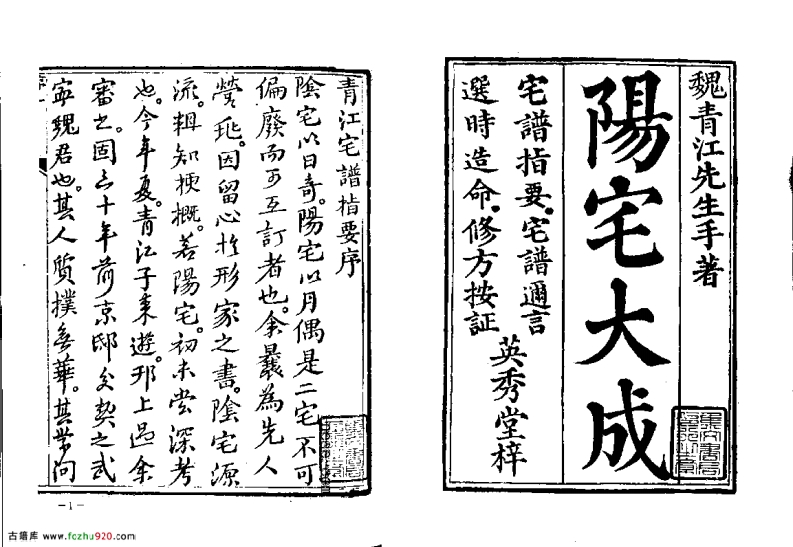 魏青江先生手著
陽宅大成
宅譜指要。宅譜邇言
選時造命。修方按証
英秀堂梓
青江宅譜指要序
陰宅以日奇。陽宅以月偶是二宅不可
偏廢而可互訂者也。余曩為先人
營兆。因留心於形家之書。陰宅源
流。輯知梗概。若陽宅。初未嘗深考
也。今年夏。青江子來遊邗上過余
審之。固三十年前京邸交契之武
寧魏君也。其人質撲無華。其學問
-1-
古籍库 www.fczhu920.com